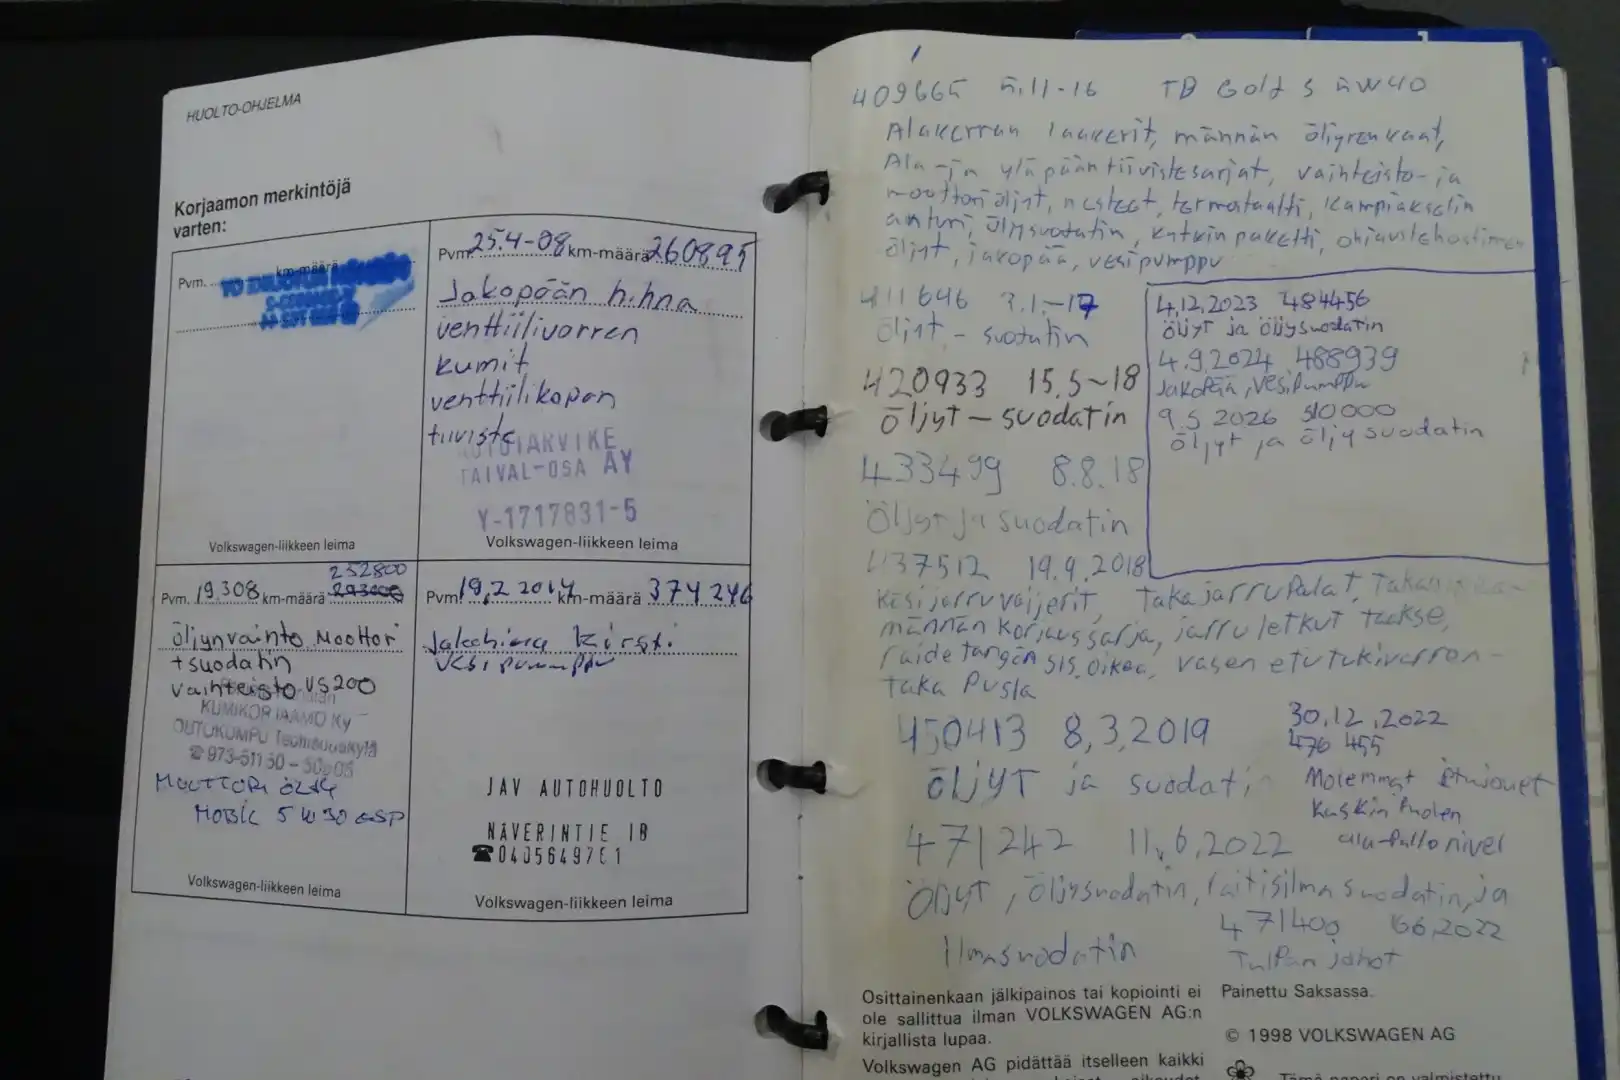 HUOLTO-OHJELMA
Korjaamon merkintöjä
varten:
Pvm. km-määrä
Volkswagen-liikkeen leima
Pvm. 25.4-08 km-määrä 260895
Jakopään hihna
venttiilivarren
kumit
venttiilikopan
tiiviste
AUTOTARVIKE
TAIVAL-OSA AY
Y-1717831-5
Volkswagen-liikkeen leima
252800
Pvm. 19.308 km-määrä
öljynvaihto Moottori
+ suodatin
vaihteisto VS200
KUMIKORJAAMO Ky
OUTOKUMPU Teollisuuskylä
☎ 973-511 50 - 50
MOOTTORI ÖLJY
MOBIL 5W30 ESP
Volkswagen-liikkeen leima
Pvm. 19,2 2014 km-määrä 374 246
Jakohihna kirsti
vesipumppu
JAV AUTOHUOLTO
NÄVERINTIE 18
☎0405649761
Volkswagen-liikkeen leima
409665 5.11-16 TB Gold S 5W40
Alakerran laakerit, männän öljyrenkaat,
Ala-ja yläpään tiivistesarjat, vaihteisto-ja
moottoriöljyt, nesteet, termostaatti, kampiakselin
anturi, öljysuodatin, kytkinpaketti, ohjaustehostimen
öljyt, jakopää, vesipumppu
411646 7.1-17
öljyt - suodatin
420933 15.5-18
öljyt - suodatin
433499 8.8.18
Öljyt ja suodatin
437512 19.9.2018
Käsijarruvaijerit, Takajarrupalat,
männän korjaussarja, jarruletkut taakse,
raidetangon sis. oikea, vasen etutukivarron-
taka Pusla
4.12.2023 484456
öljyt ja öljysuodatin
4.9.2024 488939
Jakopää, vesipumppu
9.5 2026 510000
öljyt ja öljysuodatin
450413 8,3,2019
öljyt ja suodatin
30.12.2022
476 455
Molemmat etuiouet
Kuskin Puolen
ala-Pallonivel
471242 11,6,2022
Öljyt, öljysuodatin, raitisilmasuodatin, ja
Ilmasuodatin
471400 16.6.2022
Tulpan johot
Osittainenkaan jälkipainos tai kopiointi ei
ole sallittua ilman VOLKSWAGEN AG:n
kirjallista lupaa.
Volkswagen AG pidättää itselleen kaikki
Painettu Saksassa.
© 1998 VOLKSWAGEN AG
Tämä paperi on valmistettu